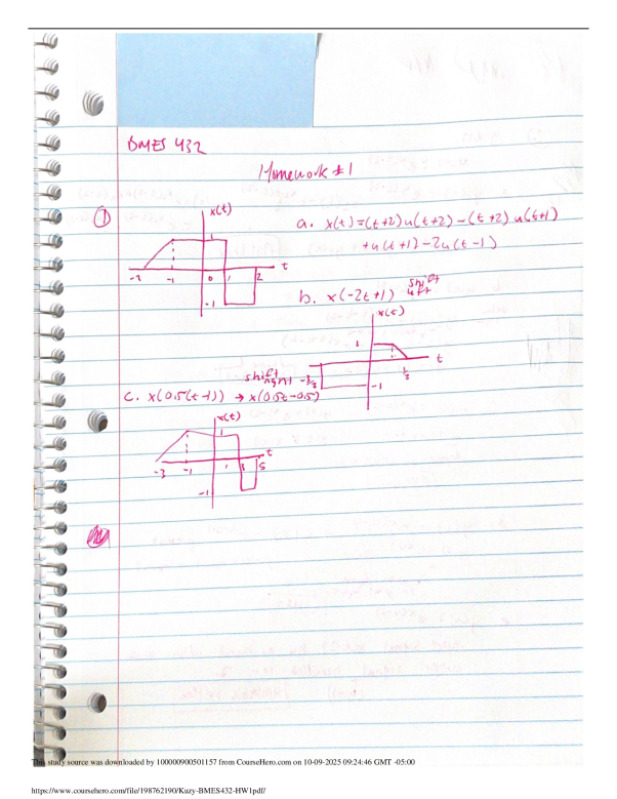 BMES 432
Homework #1
①
x(t)
1
t
-2 -1 0 1 2
-1
a. x(t)=(t+2)u(t+2)-(t+2)u(t+1)
+u(t+1)-2u(t-1)
b. x(-2t+1) shift left
x(t)
1
t
-1
c. x(0.5(t-1)) → x(0.5t-0.5) shift right
x(t)
1
t
-3 -1 1 3 5
-1
This study source was downloaded by 100000900501157 from CourseHero.com on 10-09-2025 09:24:46 GMT -05:00
https://www.coursehero.com/file/198762190/Kuzy-BMES432-HW1pdf/